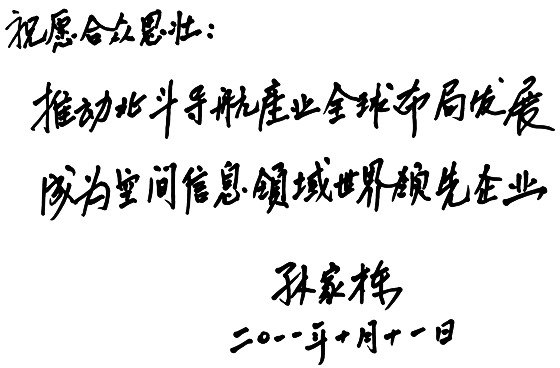 祝愿合众思壮：
推动北斗导航产业全球布局发展
成为空间信息领域世界领先企业
孙家栋
二〇一一年十月十一日